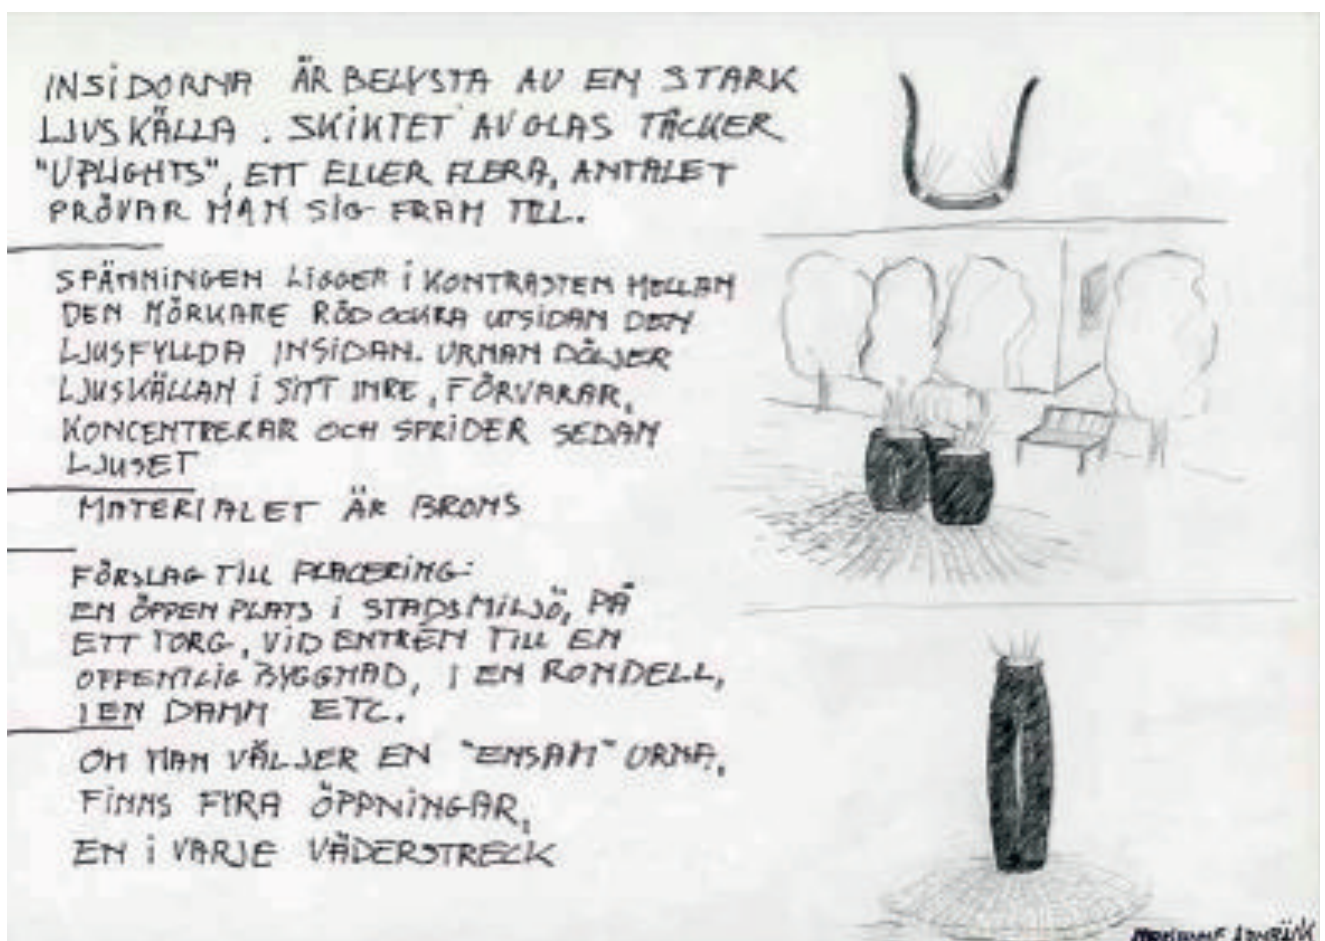 INSIDORNA ÄR BELYSTA AV EN STARK
LJUSKÄLLA. SKIKTET AV GLAS TÄCKER
"UPLIGHTS", ETT ELLER FLERA, ANTALET
PRÖVAR MAN SIG FRAM TILL.
SPÄNNINGEN LIGGER I KONTRASTEN MELLAN
DEN MÖRKARE RÖD OCKRA UTSIDAN DEN
LJUSFYLLDA INSIDAN. URNAN DÖLJER
LJUSKÄLLAN I SITT INRE, FÖRVARAR,
KONCENTRERAR OCH SPRIDER SEDAN
LJUSET
MATERIALET ÄR BRONS
FÖRSLAG TILL PLACERING:
EN ÖPPEN PLATS I STADSMILJÖ, PÅ
ETT TORG, VID ENTRÉN TILL EN
OFFENTLIG BYGGNAD, I EN RONDELL,
I EN DAMM ETC.
OM MAN VÄLJER EN "ENSAM" URNA,
FINNS FYRA ÖPPNINGAR,
EN I VARJE VÄDERSTRECK
MARIANNE